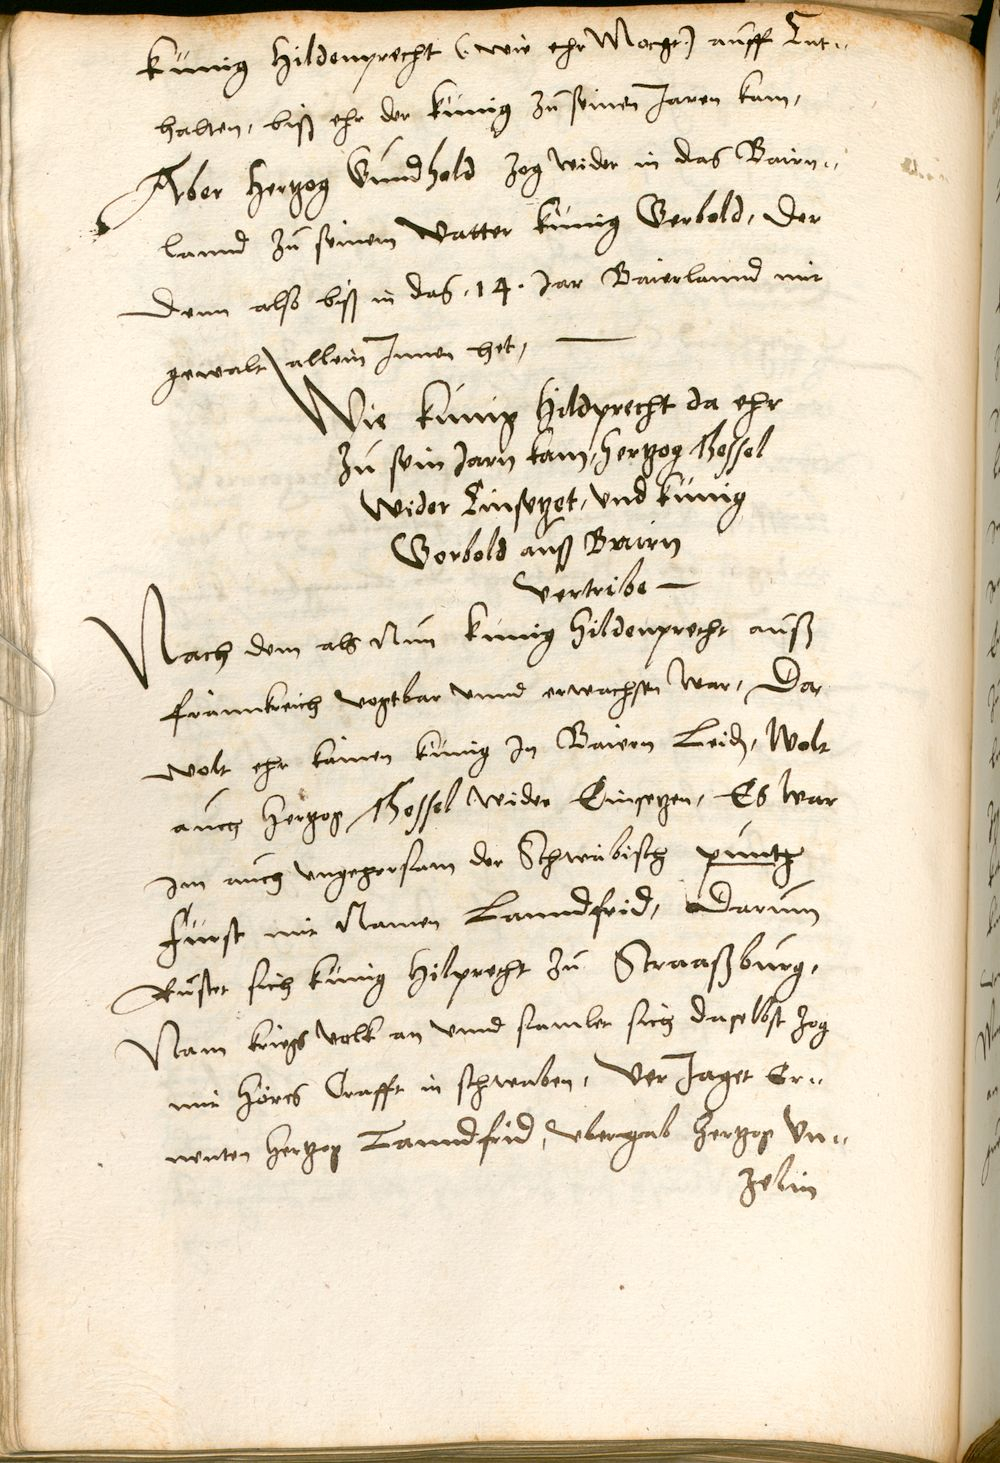 künig Hildenprecht (: wie ehr Mocht) auff Ent-
halten, biß ehr der künig zu seinen Jaren kam,
Aber Hertzog Gundhold zog wider in das Bairn-
lannd zu seinem Vatter künig Gerbold, Der
Denn also biß in das .14. Jar Baierlannd mit
gewalt allein Innen het,
Wie künig Hildprecht da ehr
zu sein Jarn kam, Hertzog Thessel
wider Einsetzet, vnd künig
Gerbold auß Bairn
vertribe
Nach dem als Nun künig Hildenprecht auß
franckreich vogtbar vnnd erwachsen war, Da
wolt ehr kainen künig In Baiern Leid, Wolt
auch Hertzog Thessel wider Einsetzen, Es war
Im auch vngehorsam der Schwäbisch puntz
Fürst mit Namen Lanndfrid, Darum
Rustet sich künig Hilprecht zu Straaßburg,
Nam kriegs volk an vnnd samlet sich daselbst zog
mit Hörs Crafft in schwaben, Ver Jaget Er-
nenten Hertzog Lanndfrid, vbergab Hertzog Vn-
zelin